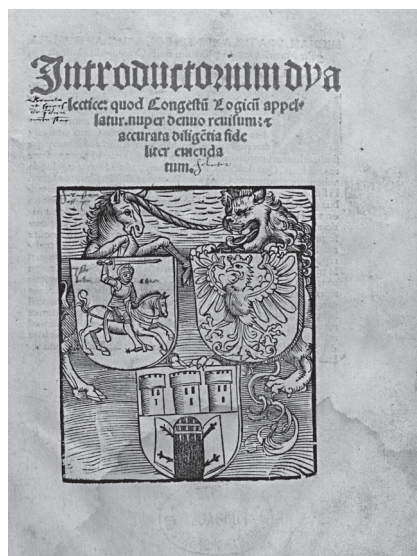 Introductorium dya
lectice: quod Congestū Logicū appel-
latur. nuper denuo reuisum: ⁊
accurata diligētia fide
liter emenda
tum.